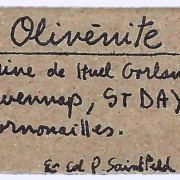 Olivénite
ine de Huel Gorlan
wennap, ST DAY
ornouailles.
Ex Col P. Saintfeld